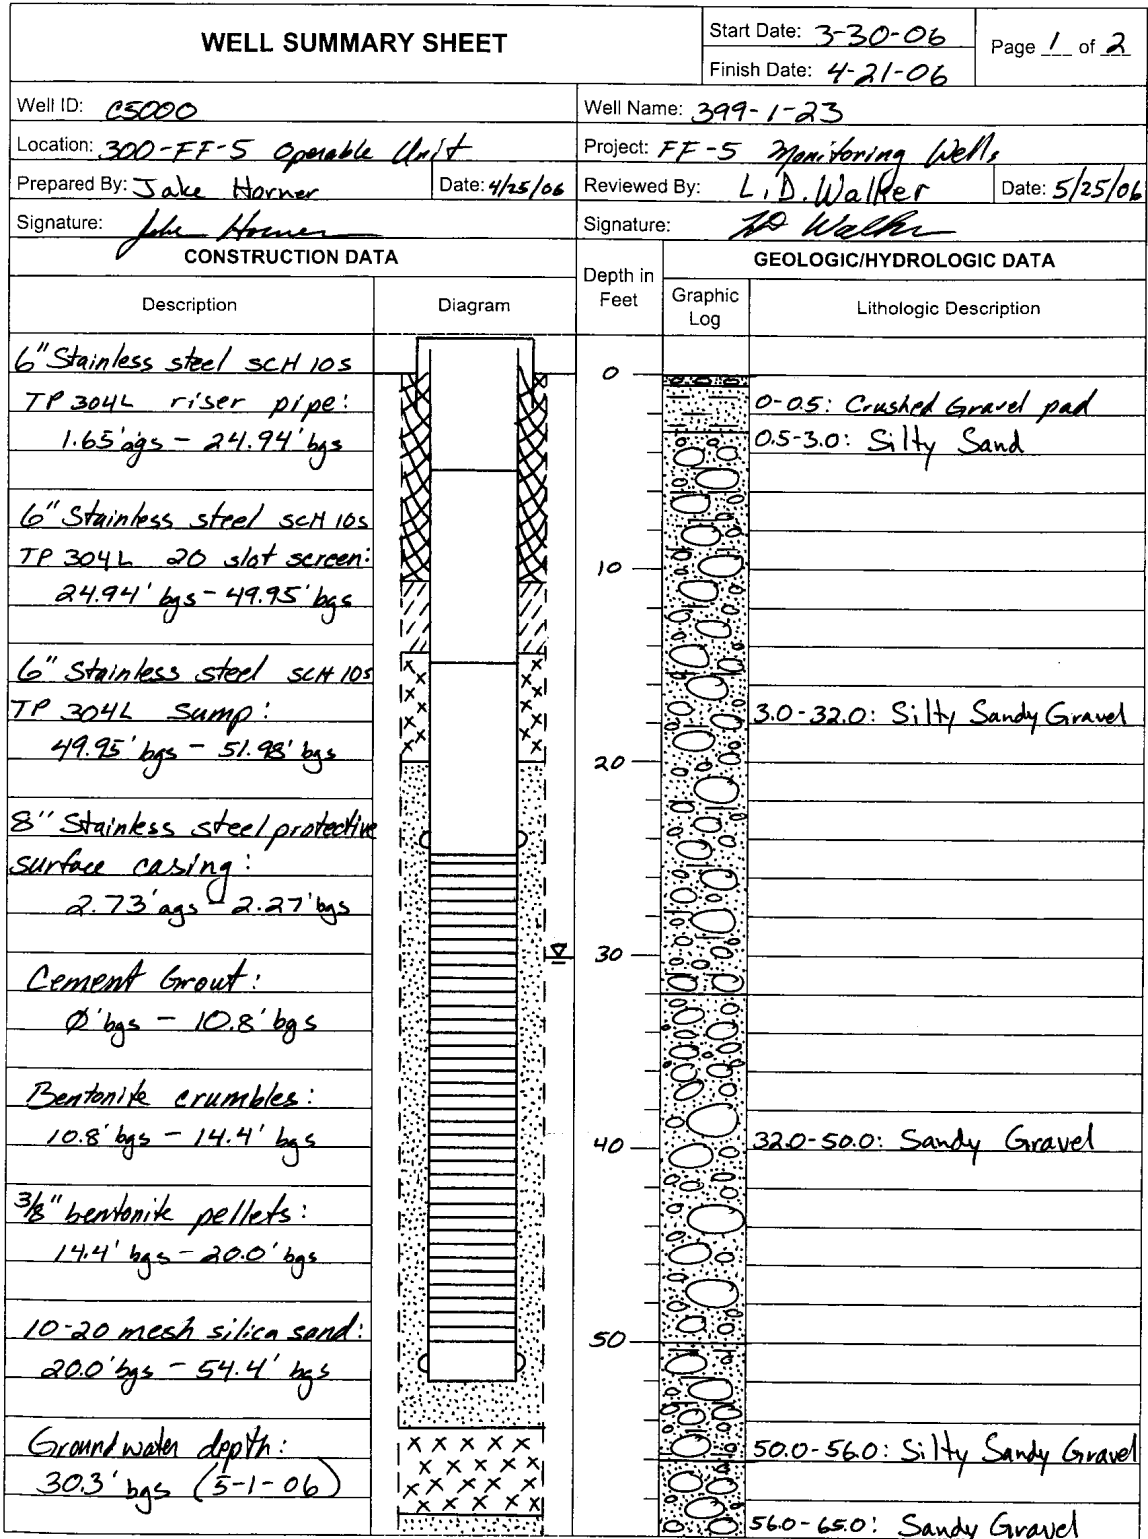 WELL SUMMARY SHEET
Start Date: 3-30-06
Finish Date: 4-21-06
Page 1 of 2
Well ID: C5000
Well Name: 399-1-23
Location: 300-FF-5 Operable Unit
Project: FF-5 Monitoring Wells
Prepared By: Jake Horner
Date: 4/25/06
Reviewed By: L.D. Walker
Date: 5/25/06
Signature: Jake Horner
Signature: LD Walker
CONSTRUCTION DATA
Depth in Feet
GEOLOGIC/HYDROLOGIC DATA
Description
Diagram
Graphic Log
Lithologic Description
6" Stainless steel SCH 10s
TP 304L riser pipe:
1.65' ags - 24.94' bgs
6" Stainless steel SCH 10s
TP 304L 20 slot screen:
24.94' bgs - 49.95' bgs
6" Stainless steel SCH 10s
TP 304L Sump:
49.95' bgs - 51.98' bgs
8" Stainless steel protective
surface casing:
2.73' ags - 2.27' bgs
Cement Grout:
Ø' bgs - 10.8' bgs
Bentonite crumbles:
10.8' bgs - 14.4' bgs
3/8" bentonite pellets:
14.4' bgs - 20.0' bgs
10-20 mesh silica sand:
20.0' bgs - 54.4' bgs
Groundwater depth:
30.3' bgs (5-1-06)
0
10
20
30
40
50
0-0.5: Crushed Gravel pad
0.5-3.0: Silty Sand
3.0-32.0: Silty Sandy Gravel
32.0-50.0: Sandy Gravel
50.0-56.0: Silty Sandy Gravel
56.0-65.0: Sandy Gravel